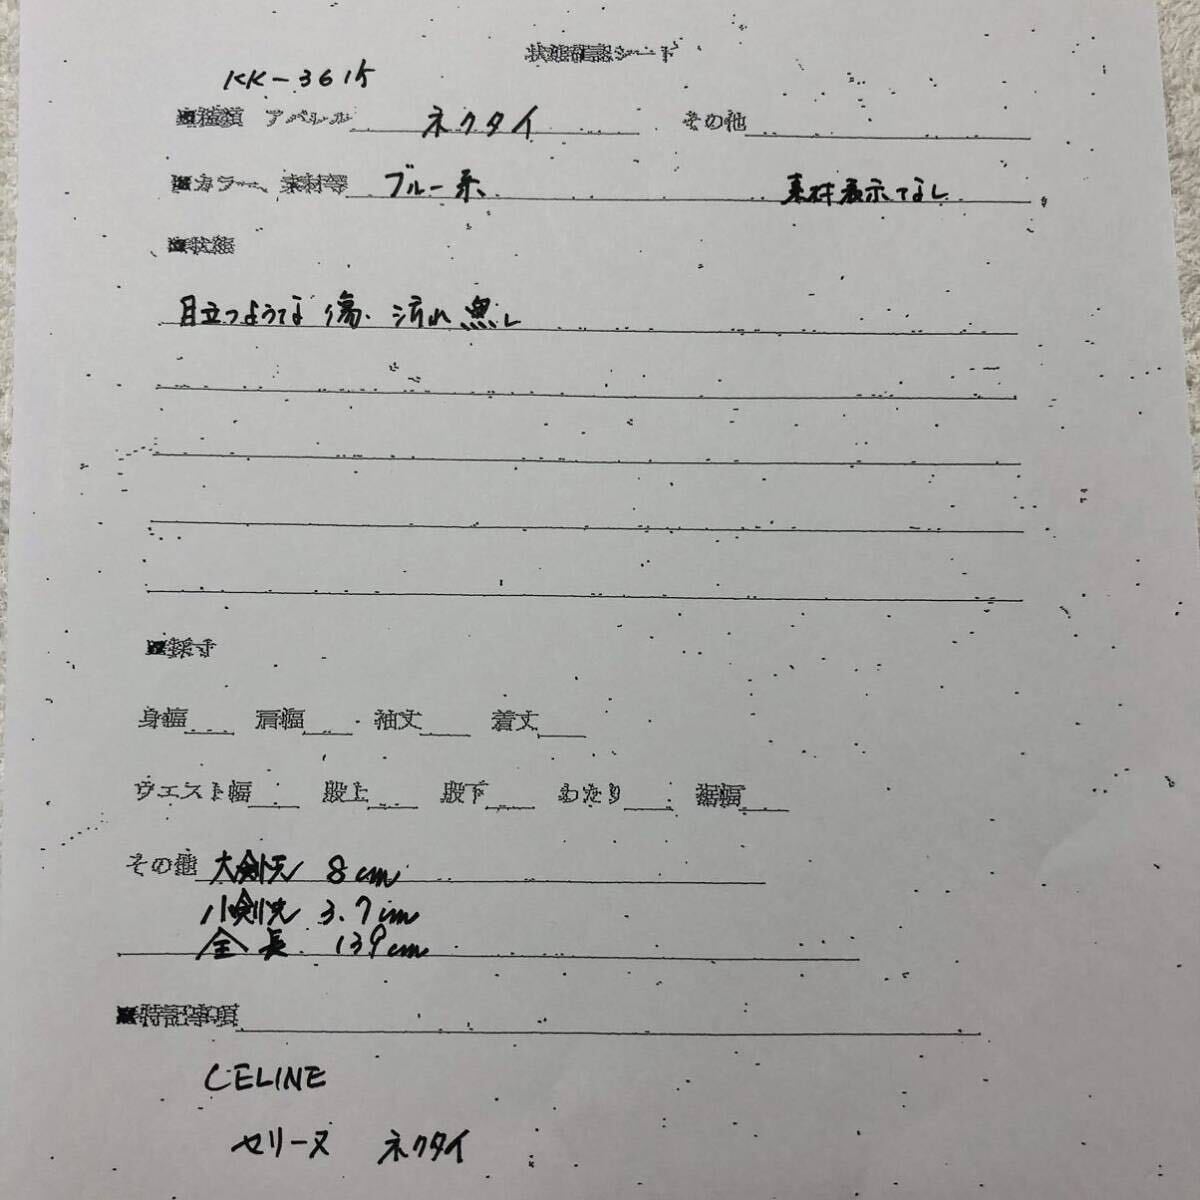 状態確認シート
KK-3615
■種類 アパレル ネクタイ その他
■カラー、素材等 ブルー系 素材表示なし
■状態
目立つような傷、汚れ無し
■採寸
身幅 肩幅 袖丈 着丈
ウエスト幅 股上 股下 わたり 裾幅
その他 大剣先 8cm
小剣先 3.7cm
全長 139cm
■特記事項
CELINE
セリーヌ ネクタイ